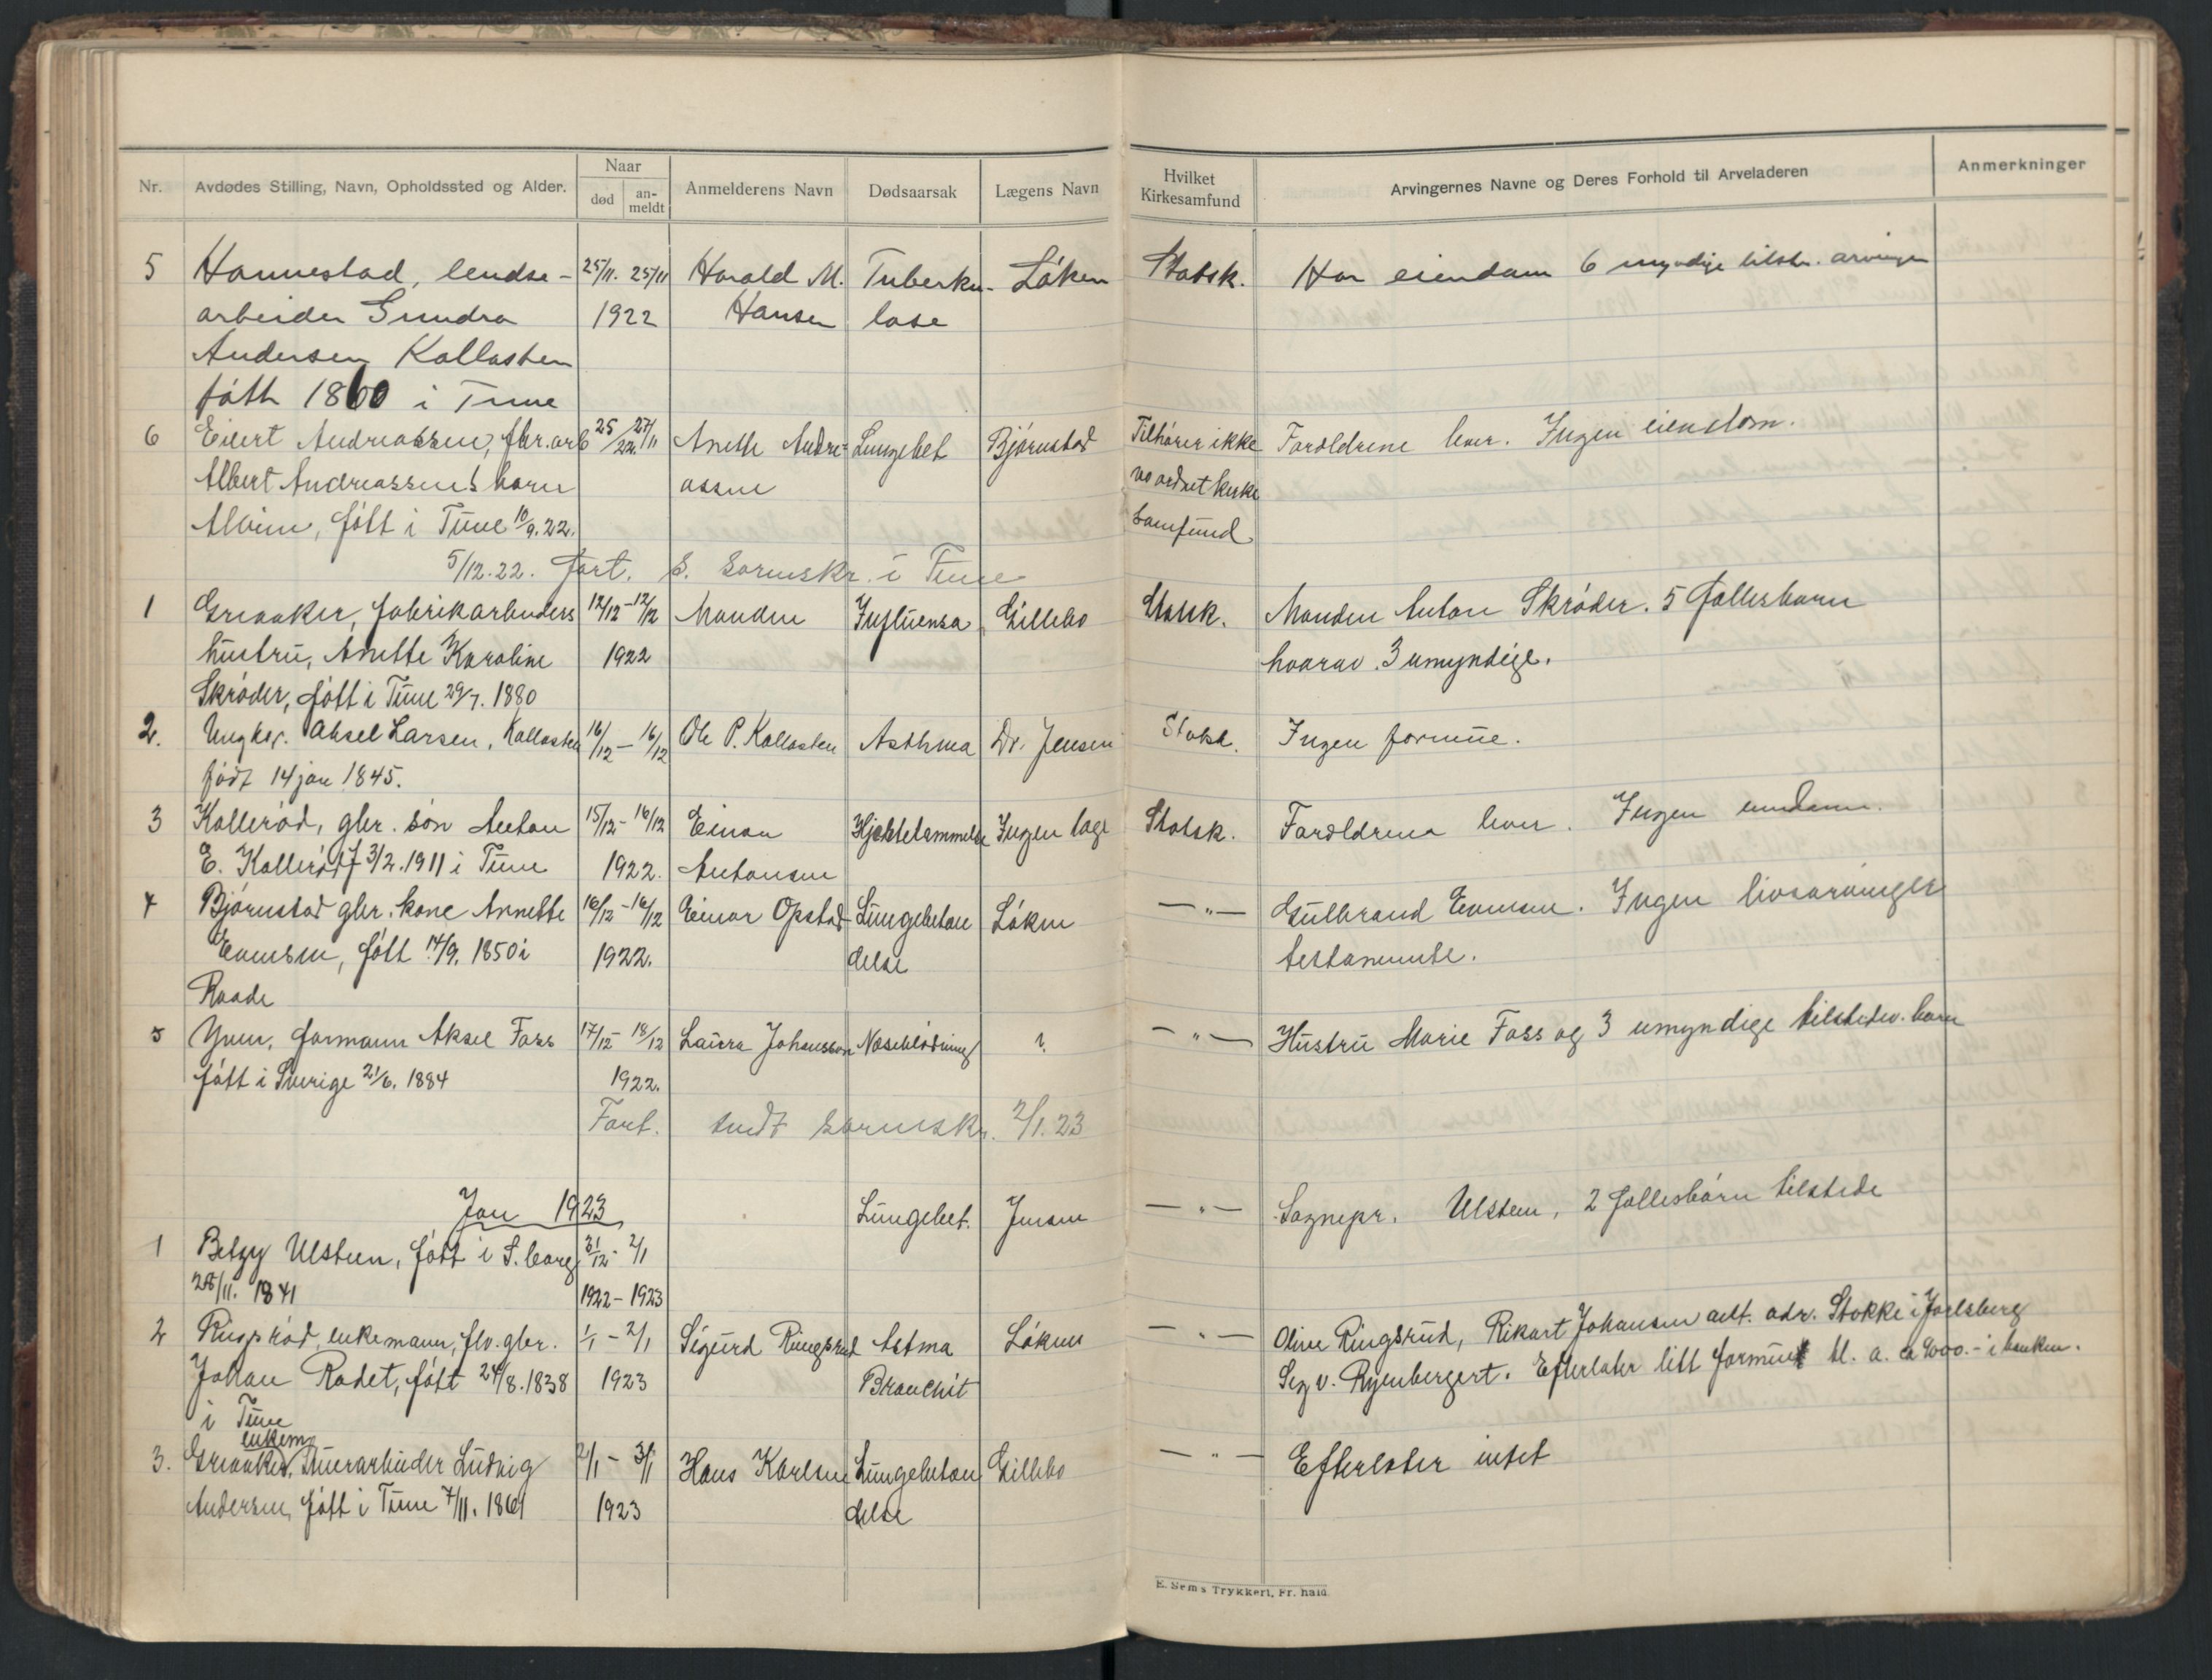 Nr. Avdødes Stilling, Navn, Opholdssted og Alder. Naar død anmeldt Anmelderens Navn Dødsaarsak Lægens Navn Hvilket Kirkesamfund Arvingernes Navne og Deres Forhold til Arveladeren Anmerkninger
5 Hannestad, lendse- 25/11. 25/11 Harald M. Tuberku- Løken Statsk. Har eiendom 6 myndige tilst. arvinger
arbeider Gundro 1922 Hansen lose
Andersen Kallasten
født 1860 i Tune
6 Eilert Andreassen, fbr.arb 25/22. 27/11 Anette Andre- Lungebet Bjørnstad Tilhører ikke Foræeldrene lever. Ingen eiendom.
Albert Andreassens barn assen no ordnet kirke
Alvin, født i Tune 10/9.22. samfund
5/12.22. fort. s. sorenskr. i Tune
1 Greaaker, fabrikarbeiders 12/12-12/12 Manden Influensa Gillebo Statsk. Manden Anton Skrøder. 5 fællesbarn
hustru, Anette Karoline 1922 hvorav 3 umyndige.
Skrøder, født i Tune 29/7. 1880
2. Ungkar. Aksel Larsen, Kallasten 16/12 - 16/12 Ole P. Kallasten Asthma Dr. Jensen Statsk. Ingen formue.
født 14 jan 1845.
3 Kallerød, gbr. søn Anton 15/12- 16/12 Einar Hjertelammelse Ingen læge Statsk. Forældrene lever. Ingen eiendom.
E. Kallerød f 3/2.1911 i Tune 1922. Antonsen
4 Bjørnstad gbr. kone Annette 16/12 -16/12 Einar Opstad Lungebeten Løken -"- Gulbrand Evensen. Ingen livsarvinger
Evensen, født 14/9. 1850 i 1922. delse testamente.
Raade
5 Yven, formann Aksel Foss 17/12- 18/12 Laura Johansson Næseblødning ? -"- Hustru Marie Foss og 3 umyndige tilstedev. barn
født i Sverige 21/6. 1884 1922.
Fort. sendt sorenskr. 2/1.23
Jan 1923 Lungebet. Jensen -"- Sognepr. Ulsteen, 2 fællesbørn tilstede
1 Betzy Ulsteen, født i S.borg 31/12- 2/1
28/11. 1841 1922-1923
2 Ringsrød, enkemann, flv. gbr. 1/1 - 2/1 Sigurd Ringsrud Astma Løken -"- Oline Ringsrud, Rikart Johansen adr. Stokke i Jarlsberg
Johan Rodet, født 24/8.1838 1923 Bronchit Sez v. Ryenberget. Efterlater litt formue bl. a. ca 9000.- i banken.
i Tune
enkem.
3. Greaaker, Tunerarbeider Ludvig 2/1 - 3/1 Hans Karlsen Lungebeten Gillebo -"- Efterlater intet
Andersen, født i Tune 7/11. 1861 1923 delse
E. Sems Trykkeri, Fr.hald